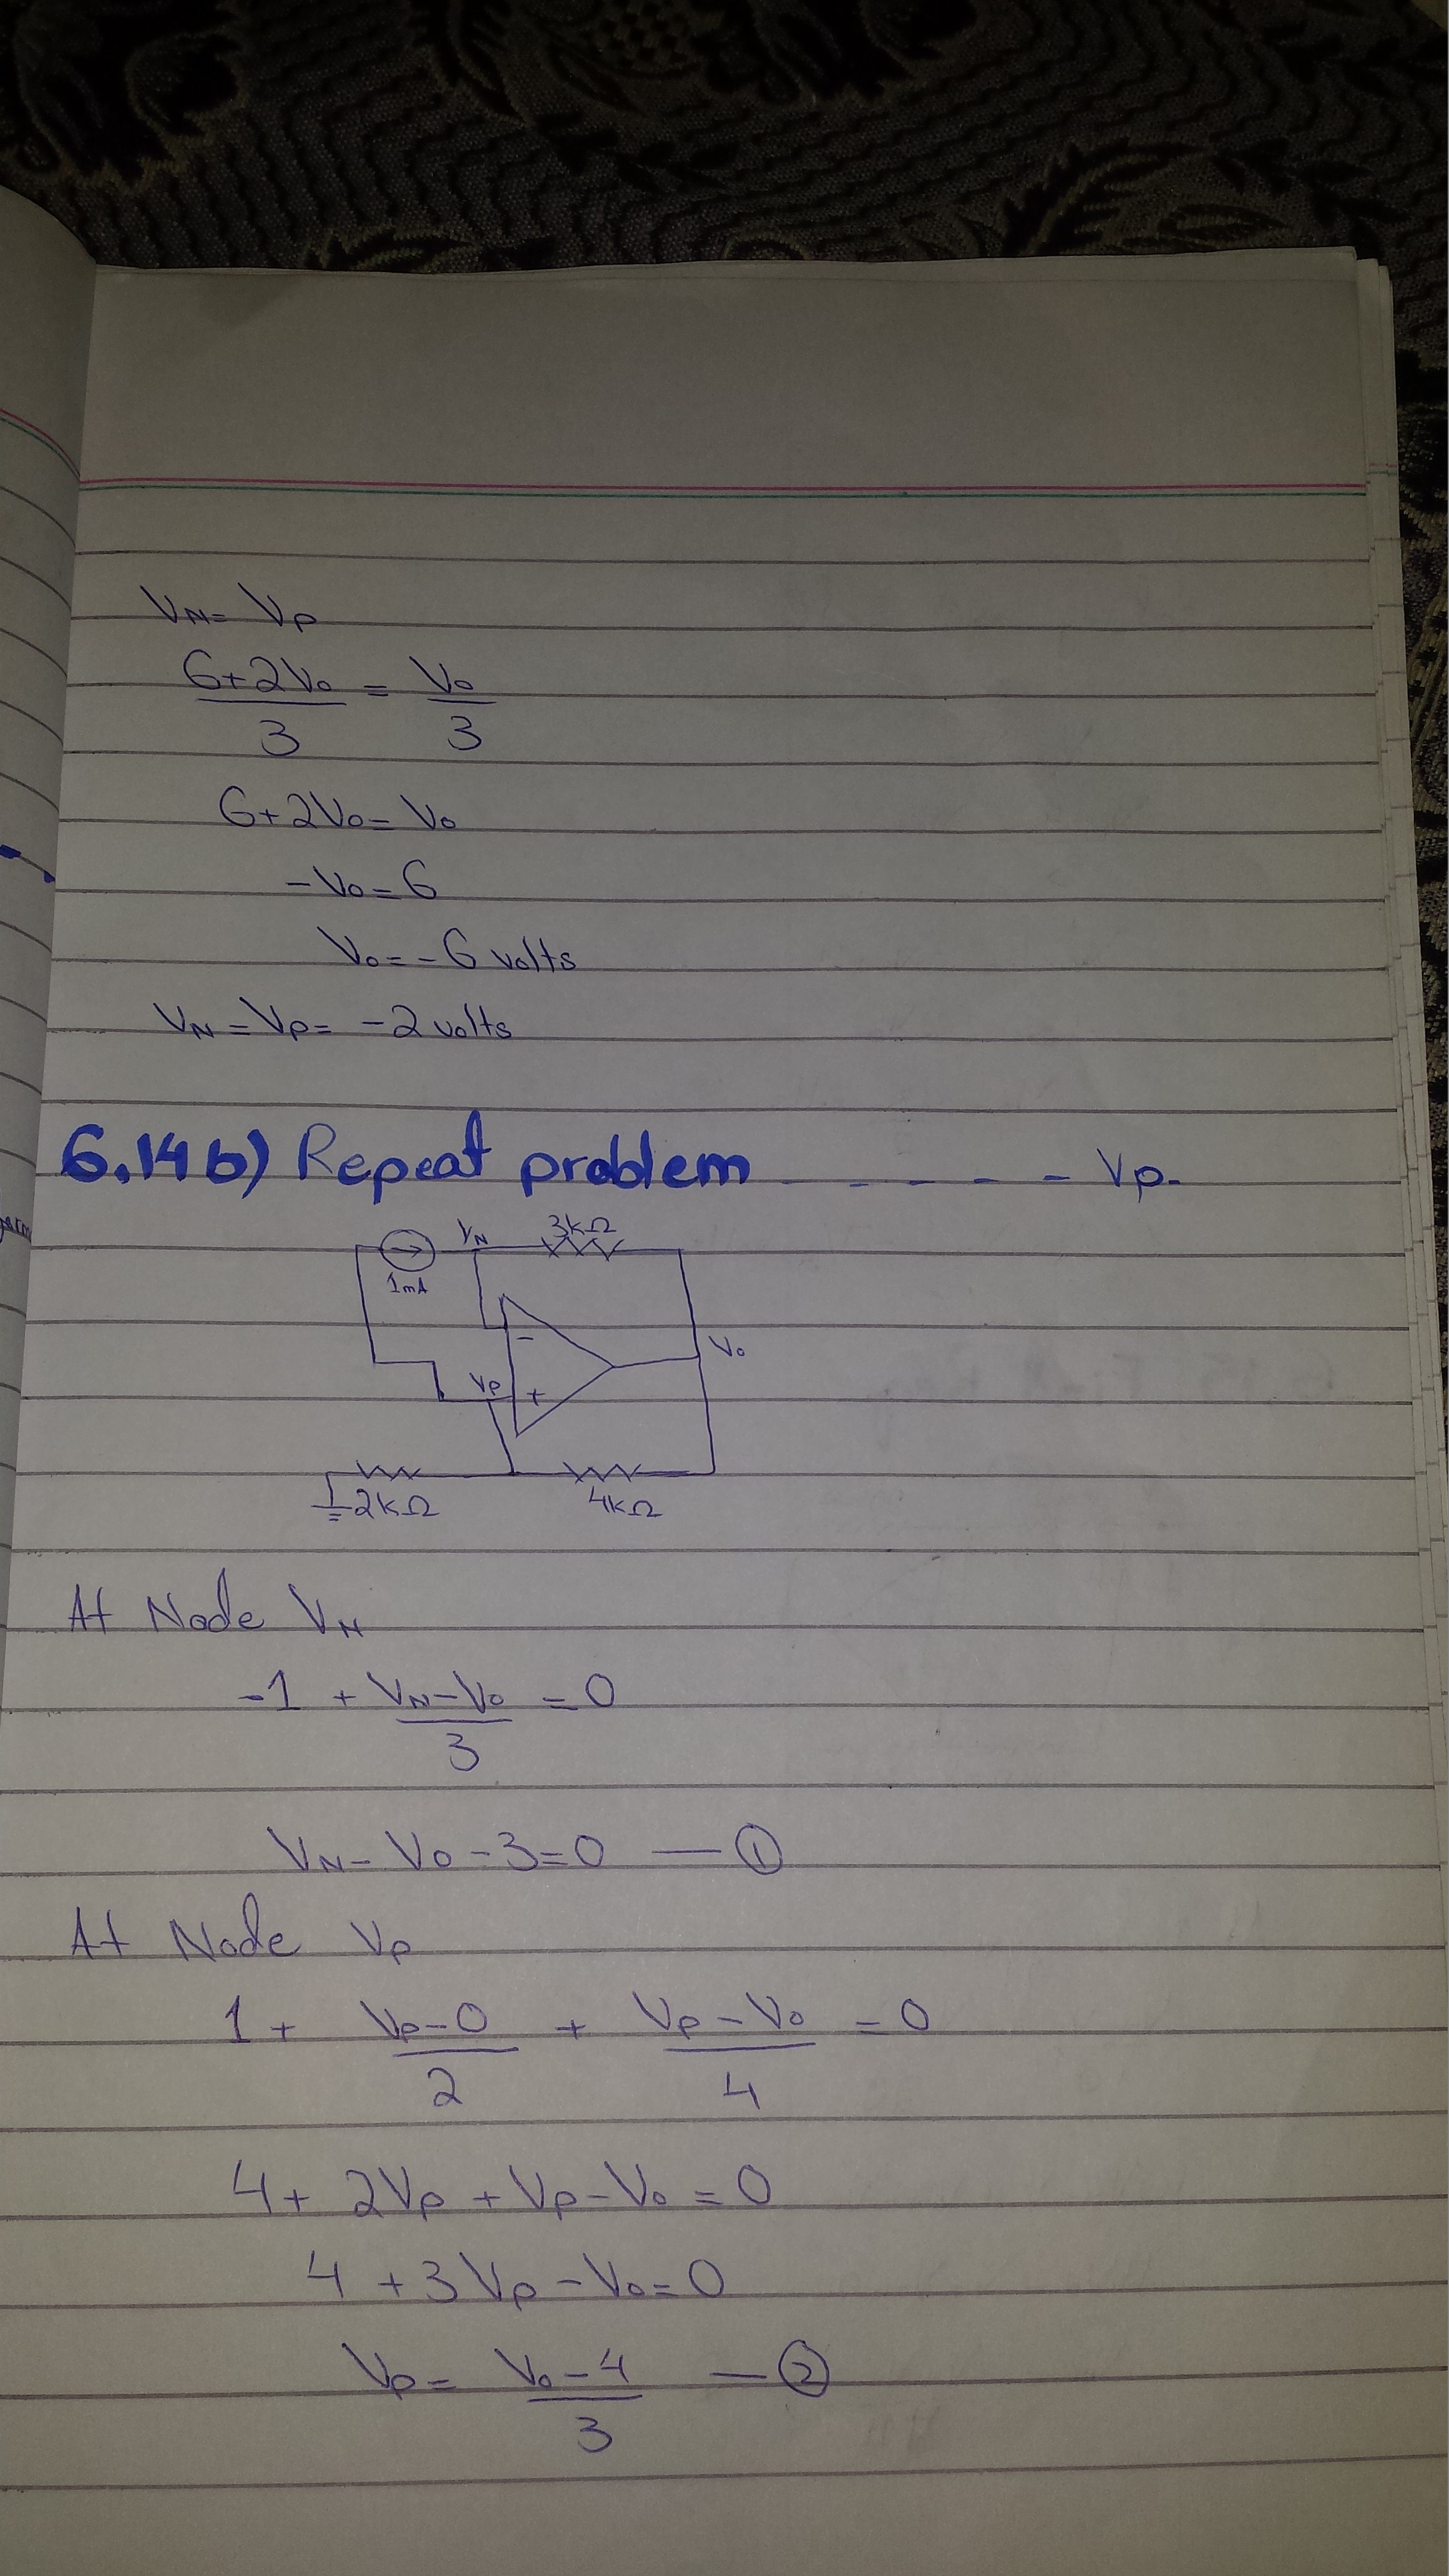 VN = VP
6+2Vo / 3 = Vo / 3
6+2Vo = Vo
-Vo = 6
Vo = -6 volts
VN = VP = -2 volts
6.14 b) Repeat problem - - - - - VP.
VN 3kΩ
1mA
-
Vo
VP +
2kΩ 4kΩ
At Node VN
-1 + VN-Vo / 3 = 0
VN - Vo - 3 = 0 — ①
At Node VP
1 + VP-0 / 2 + VP-Vo / 4 = 0
4 + 2VP + VP - Vo = 0
4 + 3VP - Vo = 0
VP = Vo-4 / 3 — ②